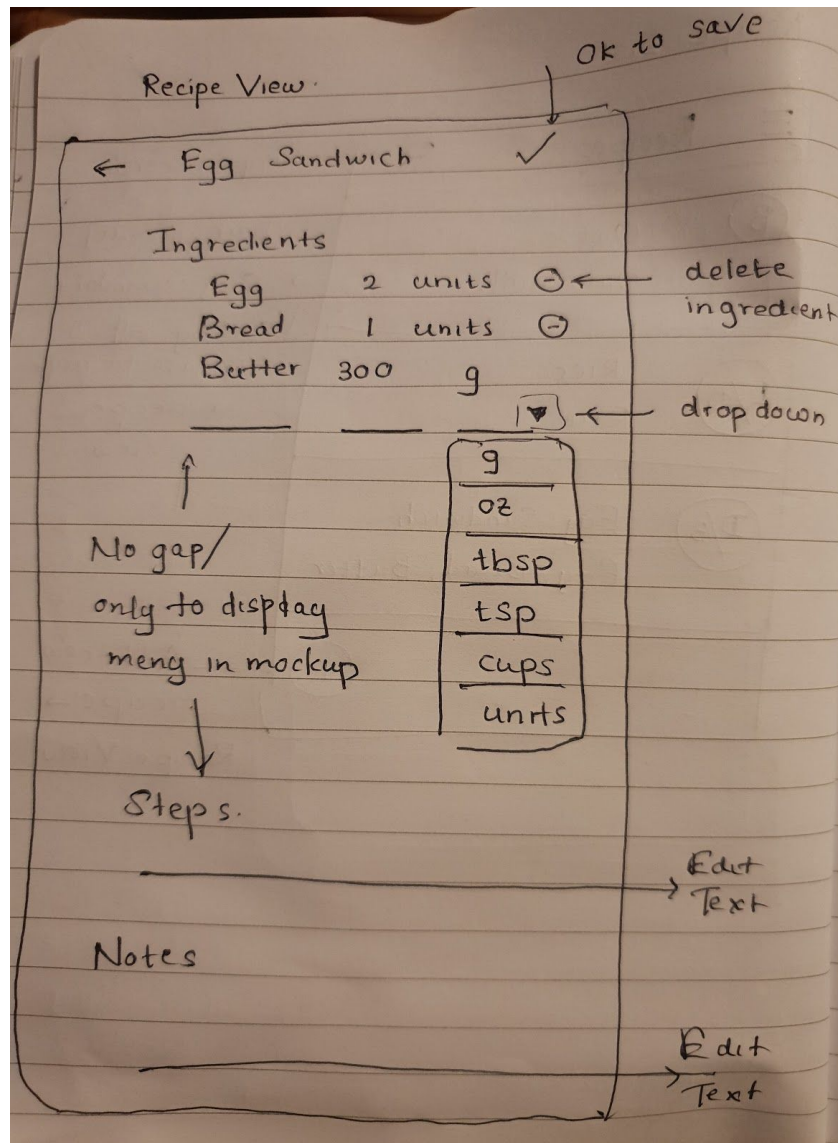 OK to save
Recipe View.
← Egg Sandwich ✓
Ingredients
Egg 2 units ⊖ ← delete
ingredient
Bread 1 units ⊖
Butter 300 g
▼ ← drop down
g
oz
tbsp
tsp
cups
units
No gap/
only to display
meny in mockup
Steps.
Edit
Text
Notes
Edit
Text